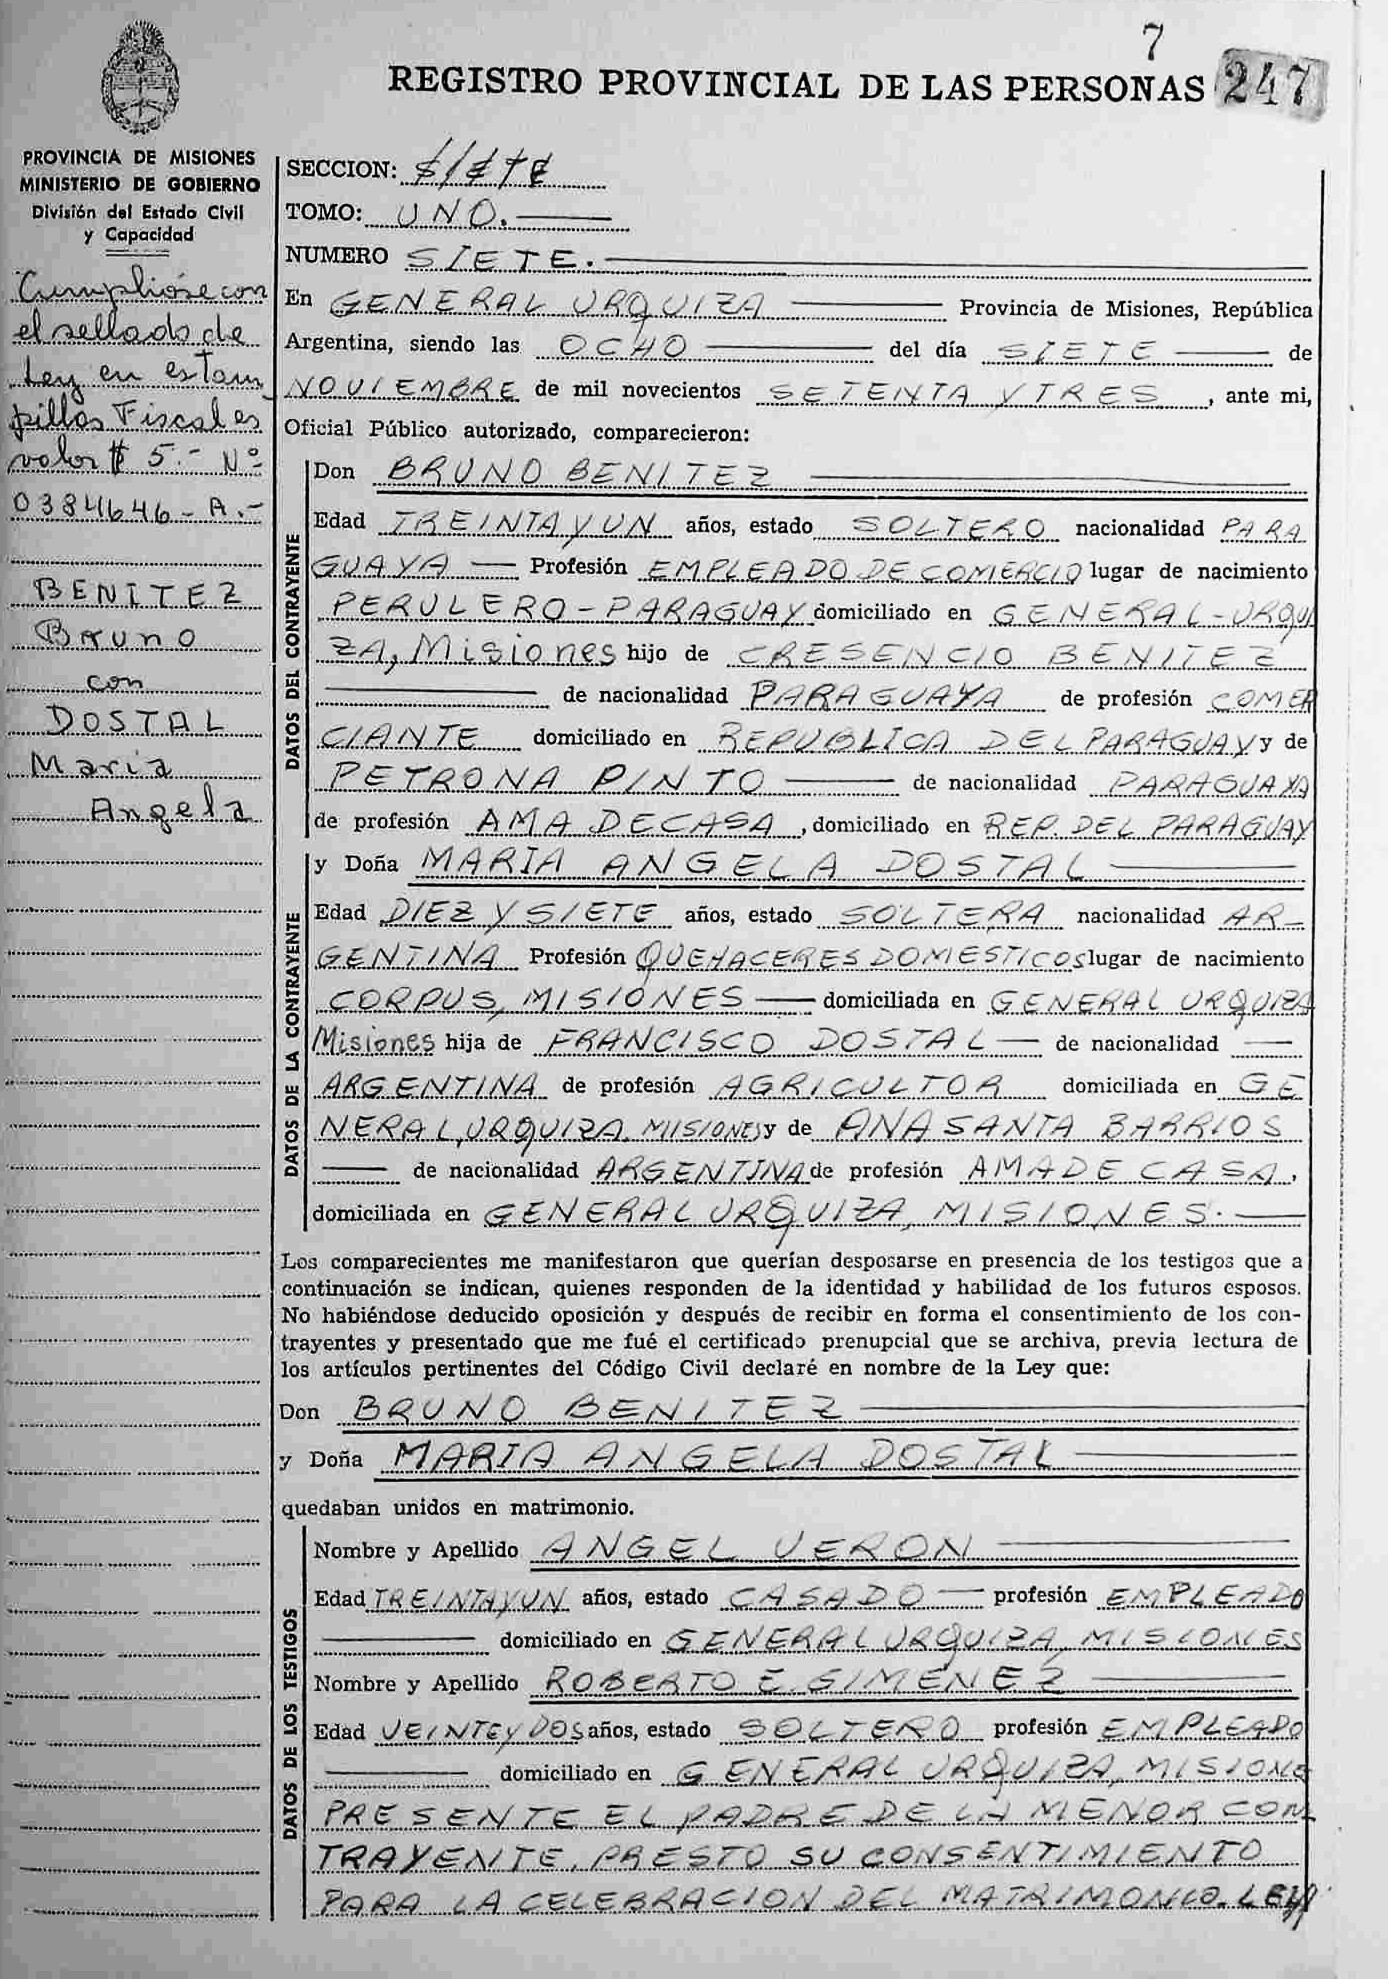 7
REGISTRO PROVINCIAL DE LAS PERSONAS 247
PROVINCIA DE MISIONES
MINISTERIO DE GOBIERNO
División del Estado Civil
y Capacidad
Cumplióse con
el sellado de
Ley en estam
pillas Fiscales
valor $ 5.- Nº
0384646- A.-
BENITEZ
Bruno
con
DOSTAL
Maria
Angela
SECCION: SIETE
TOMO: UNO.
NUMERO SIETE.
En GENERAL URQUIZA Provincia de Misiones, República
Argentina, siendo las OCHO del día SIETE de
NOVIEMBRE de mil novecientos SETENTA Y TRES, ante mi,
Oficial Público autorizado, comparecieron:
DATOS DEL CONTRAYENTE
Don BRUNO BENITEZ
Edad TREINTA Y UN años, estado SOLTERO nacionalidad PARA
GUAYA — Profesión EMPLEADO DE COMERCIO lugar de nacimiento
PERULERO-PARAGUAY domiciliado en GENERAL-URQUI
ZA, Misiones hijo de CRESENCIO BENITEZ
de nacionalidad PARAGUAYA de profesión COMER
CIANTE domiciliado en REPUBLICA DEL PARAGUAY y de
PETRONA PINTO de nacionalidad PARAGUAYA
de profesión AMA DE CASA, domiciliado en REP. DEL PARAGUAY
DATOS DE LA CONTRAYENTE
y Doña MARIA ANGELA DOSTAL
Edad DIEZ Y SIETE años, estado SOLTERA nacionalidad AR-
GENTINA Profesión QUEHACERES DOMESTICOS lugar de nacimiento
CORPUS, MISIONES — domiciliada en GENERAL URQUIZA
Misiones hija de FRANCISCO DOSTAL — de nacionalidad —
ARGENTINA de profesión AGRICULTOR domiciliada en GE
NERAL, URQUIZA. MISIONES y de ANA SANTA BARRIOS
de nacionalidad ARGENTINA de profesión AMA DE CASA,
domiciliada en GENERAL URQUIZA, MISIONES. —
Los comparecientes me manifestaron que querían desposarse en presencia de los testigos que a
continuación se indican, quienes responden de la identidad y habilidad de los futuros esposos.
No habiéndose deducido oposición y después de recibir en forma el consentimiento de los con-
trayentes y presentado que me fué el certificado prenupcial que se archiva, previa lectura de
los artículos pertinentes del Código Civil declaré en nombre de la Ley que:
Don BRUNO BENITEZ
y Doña MARIA ANGELA DOSTAL
quedaban unidos en matrimonio.
DATOS DE LOS TESTIGOS
Nombre y Apellido ANGEL VERON
Edad TREINTA Y UN años, estado CASADO — profesión EMPLEADO
domiciliado en GENERAL URQUIZA, MISIONES
Nombre y Apellido ROBERTO E. GIMENEZ
Edad VEINTE Y DOS años, estado SOLTERO profesión EMPLEADO
domiciliado en GENERAL URQUIZA, MISIONE
PRESENTE EL PADRE DE LA MENOR CON
TRAYENTE, PRESTO SU CONSENTIMIENTO
PARA LA CELEBRACION DEL MATRIMONIO.